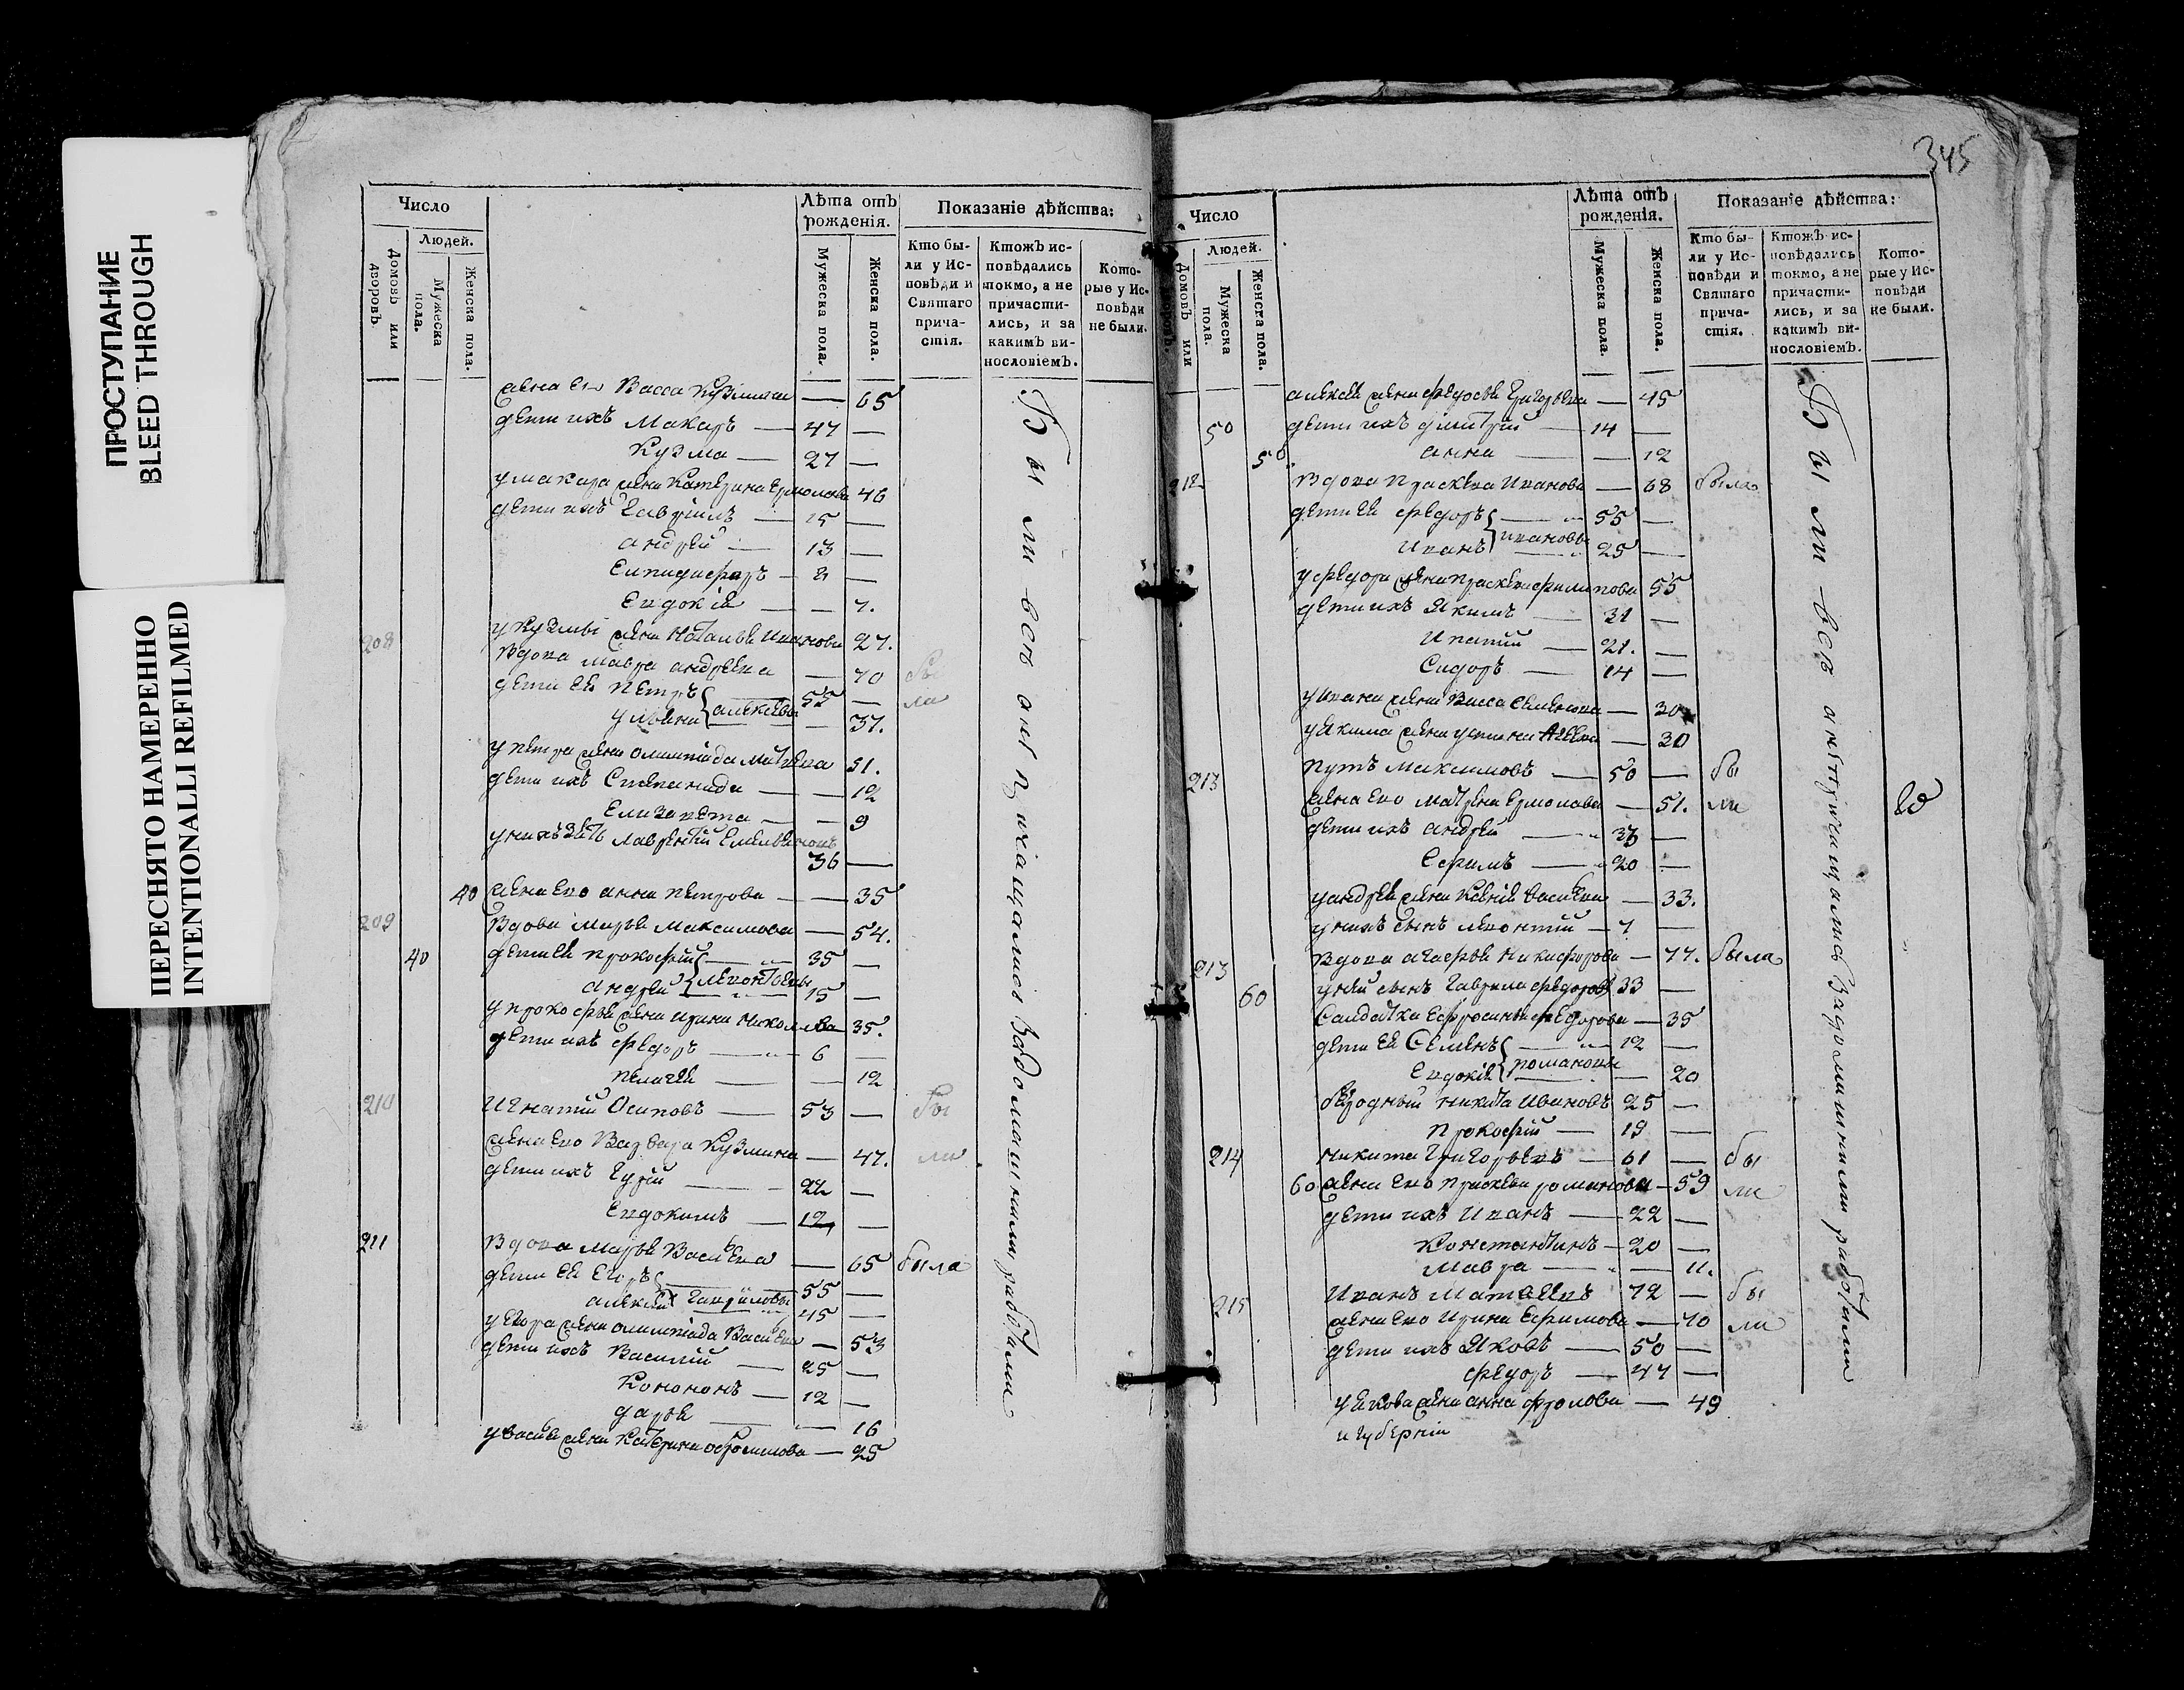 ПРОСТУПАНИЕ
BLEED THROUGH
ПЕРЕСНЯТО НАМЕРЕННО
INTENTIONALLI REFILMED
Число
Людей.
Домовъ или дворовъ.
Мужеска пола.
Женска пола.
Лѣта отъ рожденія.
Мужеска пола.
Женска пола.
Показаніе дѣйства:
Кто были у Исповѣди и Святаго причастія.
Ктожъ исповѣдались токмо, а не причастились, и за какимъ винословіемъ.
Которые у Исповѣди не были.
жена ево Васса Кузмина — 65
дети ихъ Макаръ — 47 —
Кузма — 27 —
у макара жена Катерина Ермолова 46
дети ихъ Гаврiилъ — 15 —
андрей — 13 —
Елпидифоръ — 8 —
Евдокiя — — 7.
у Кузмы жена Наталья Иванова 27.
208 Вдова мавра андреева — 70 бы
дети ея Петръ алексеевы 55 — ла
ульяна — 37.
у петра жена олимпiада матвеева 51.
дети ихъ Степанида — — 12
Елизавета — — 9
у нихъ зять лаврентiй Емельяновъ
36 —
40 жена ево анна петрова — — 35
209 Вдова Марья Максимова — 54.
40 дети ея прокофiй леонтьевы 35 —
андрей 15 —
у прокофья жена ирина Николаева 35.
дети ихъ федоръ — 6 —
пелагея — — 12
210 Игнатiй Осиповъ — 53 — бы
жена ево Варвара Кузмина — 47. ли
дети ихъ Гурiй — 22 —
Евдокимъ — 12 —
211 Вдова марья Васильева — 65 была
дети ея Егоръ Гавриловы 55 —
алексей 45 —
у Егора жена олимпiада Васильева — 53
дети ихъ Василiй — 25 —
Кононъ — 12 —
дарья — — 16
у васи‌лья жена Катерина — 25
Были всѣ а не причащались за домашними работами
345
Число
Людей.
Домовъ или дворовъ.
Мужеска пола.
Женска пола.
Лѣта отъ рожденія.
Мужеска пола.
Женска пола.
Показаніе дѣйства:
Кто были у Исповѣди и Святаго причастія.
Ктожъ исповѣдались токмо, а не причастились, и за какимъ винословіемъ.
Которые у Исповѣди не были.
алексея жена федосья Григорьева — 45
50 дети ихъ дмитрiй — 14 —
50 анна — — 12
212 Вдова Прасковья Иванова — 68 была
дети ея федоръ ивановы 55 —
Иванъ 25 —
у федора жена прасковья филипова 55
дети ихъ Якимъ — 31 —
Ипатiй — 21. —
Сидоръ — 14 —
у ивана жена Васса Семенова — 30
у Якима жена устинья — 30
213 Путъ Максимовъ — 50 — бы
жена ево матрена Ермолаева — 51. ли
дети ихъ андрей — 33 —
Ефимъ — 20 —
у андрея жена Ксенiя Васильева — 33.
у нихъ сынъ леонтiй — 7 —
213 Вдова агафья Никифорова — 77. была
60 у ней сынъ Гаврила федоровъ 33 —
Салдатка Ефросинья федорова — 35
дети ея Семенъ романовы 12 —
Евдокiя — 20
Никита Ивановъ 25 —
Прокофiй — 19 —
214 Никита Григорьевъ — 61 — бы
60 жена ево прасковья романова — 59 ли
дети ихъ Иванъ — 22 —
Константинъ — 20 —
Мавра — — 11.
215 Иванъ Матвеевъ 72 — бы
жена ево Ирина Ефимова — 70 ли
дети ихъ Яковъ — 50 —
федоръ — 47 —
у Якова жена анна фролова — 49
Были всѣ а не причащались за домашними работами